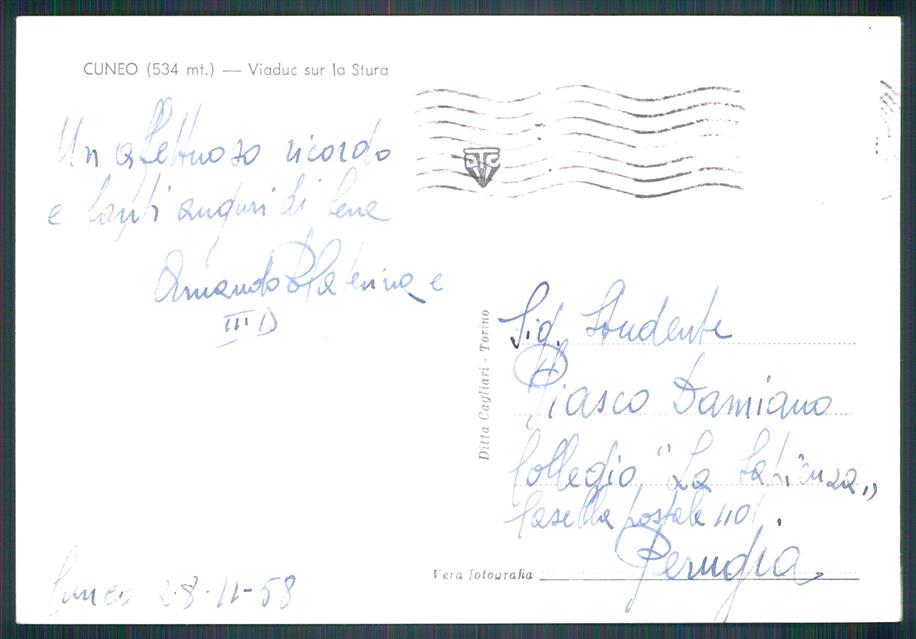 CUNEO (534 mt.) — Viaduc sur la Stura
Un affettuoso ricordo
e tanti auguri di bene
Armando Platerina e
III D
Cuneo 28-11-58
Ditta Cagliari - Torino
Vera fotografia
Sig. Studente
Piasco Damiano
Collegio "La Sapienza"
Casella postale 110.
Perugia